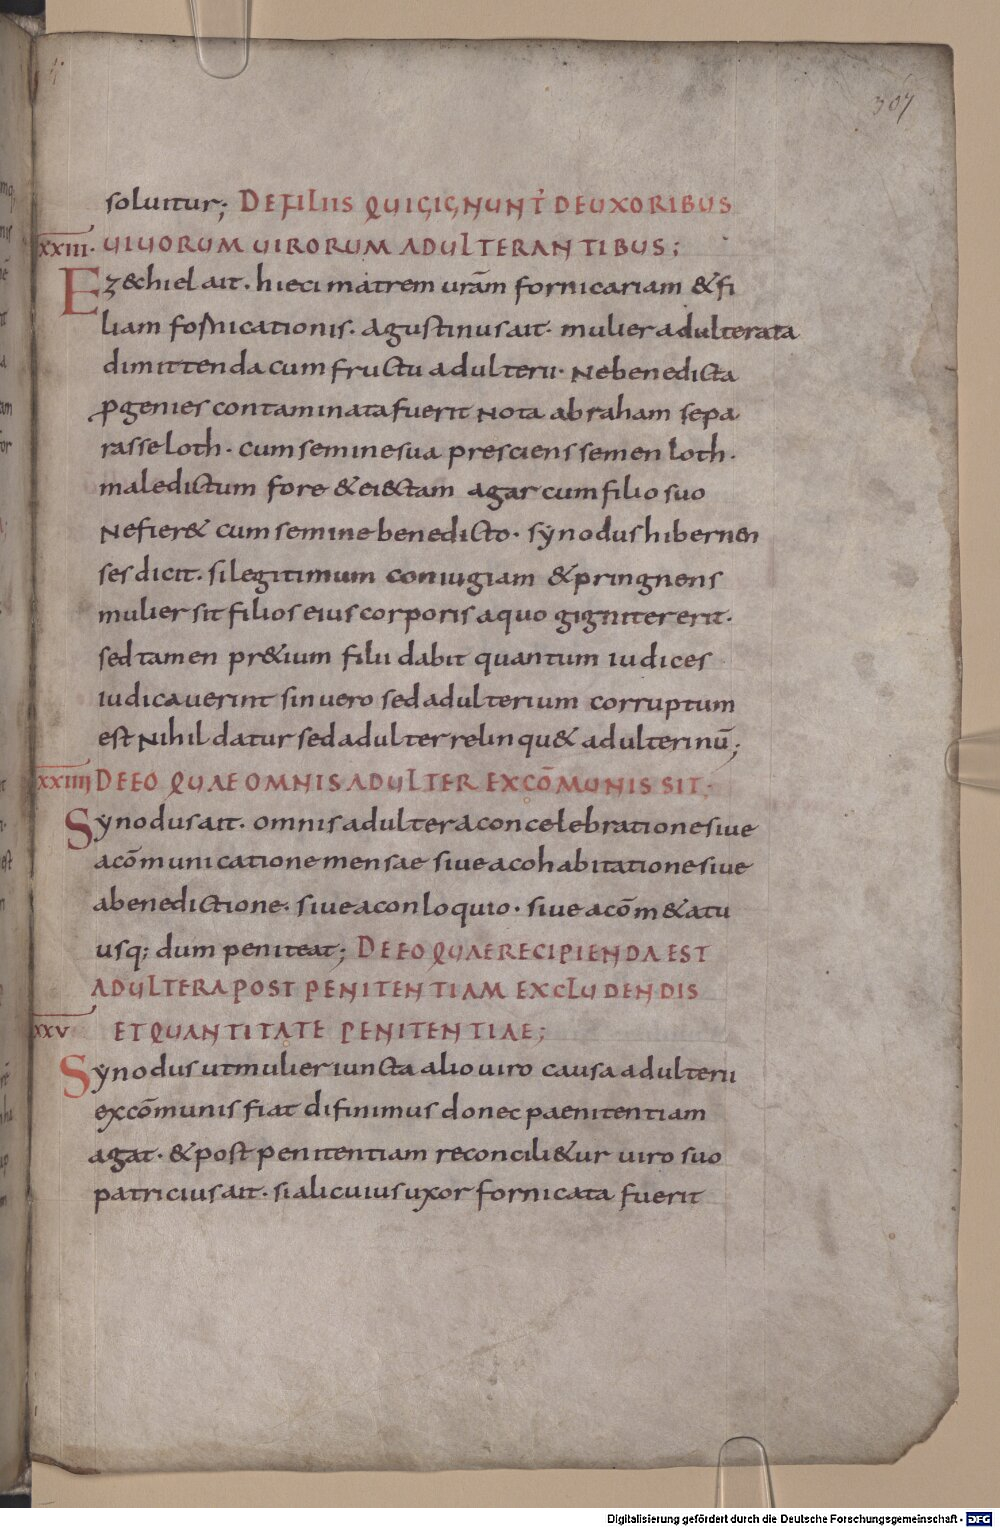 307
soluitur; DEFILIIS QUIGIGNUNT̄ DEUXORIBUS
XXIII. UIUORUM UIRORUM ADULTERANTIBUS;
Ez&chiel ait. hieci matrem urām fornicariam &fi
liam fornicationis. agustinus ait. mulier adulterata
dimittenda cum fructu adulterii. Ne benedicta
ꝓgenies contaminata fuerit Nota abraham sepa
rasse loth. cum semine sua presciens semen loth.
maledictum fore & ei&ctam agar cum filio suo
Ne fier& cum semine benedicto. synodus hibernen
ses dicit. si legitimum coniugiam & pringnens
mulier sit filios eius corporis a quo gigniter erit.
sed tamen pr&ium filii dabit quantum iudices
iudicauerint sin uero sed adulterium corruptum
est Nihil datur sed adulter relinqu& adulterinū;
XXIIII DEEO QUAE OMNIS ADULTER EXCŌMUNIS SIT;
Synodus ait. omnis adulter a concelebratione siue
acōmunicatione mensae siue a cohabitatione siue
abenedictione. siue a conloquio. siue acōm&atu
usq; dum peniteat; DEEO QUAE RECIPIENDA EST
ADULTERA POST PENITENTIAM EXCLUDENDIS
XXV ET QUANTITATE PENITENTIAE;
Synodus ut mulier iuncta alio uiro causa adulterii
excōmunis fiat difinimus donec paenitentiam
agat. & post penitentiam reconcili&ur uiro suo
patricius ait. si alicuius uxor fornicata fuerit
Digitalisierung gefördert durch die Deutsche Forschungsgemeinschaft - DFG